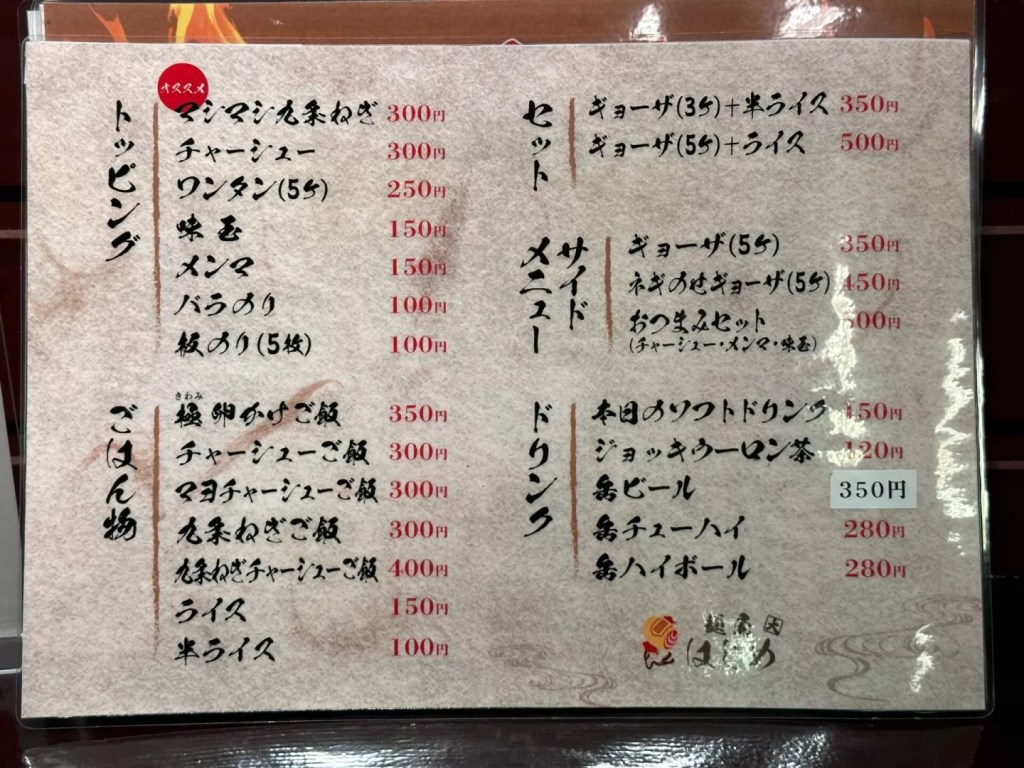 オススメ
トッピング
マシマシ九条ねぎ 300円
チャーシュー 300円
ワンタン(5ケ) 250円
味玉 150円
メンマ 150円
バラのり 100円
板のり(5枚) 100円
ごはん物
きわみ
極卵かけご飯 350円
チャーシューご飯 300円
マヨチャーシューご飯 300円
九条ねぎご飯 300円
九条ねぎチャーシューご飯 400円
ライス 150円
半ライス 100円
セット
ギョーザ(3ケ)+半ライス 350円
ギョーザ(5ケ)+ライス 500円
サイド
メニュー
ギョーザ(5ケ) 350円
ネギのせギョーザ(5ケ) 450円
おつまみセット 00円
(チャーシュー・メンマ・味玉)
ドリンク
本日のソフトドリンク 150円
ジョッキウーロン茶 120円
缶ビール 350円
缶チューハイ 280円
缶ハイボール 280円
はじめ